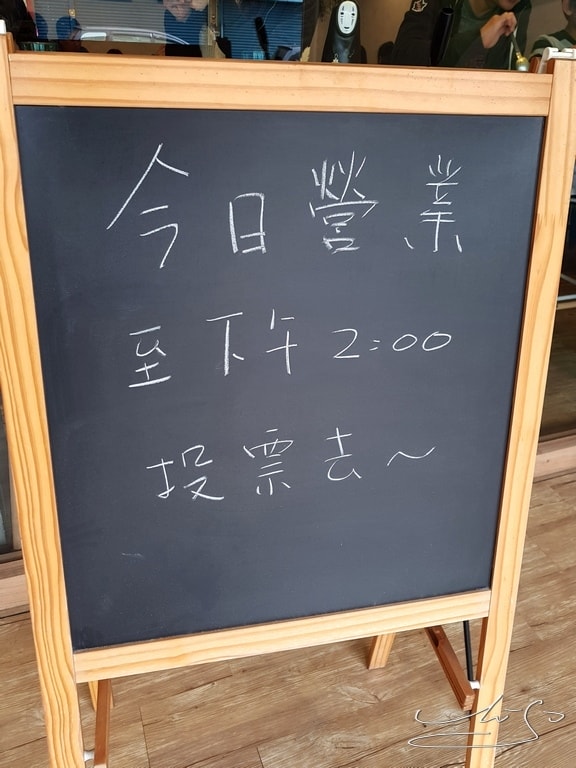 今日營業
至下午2:00
投票去~